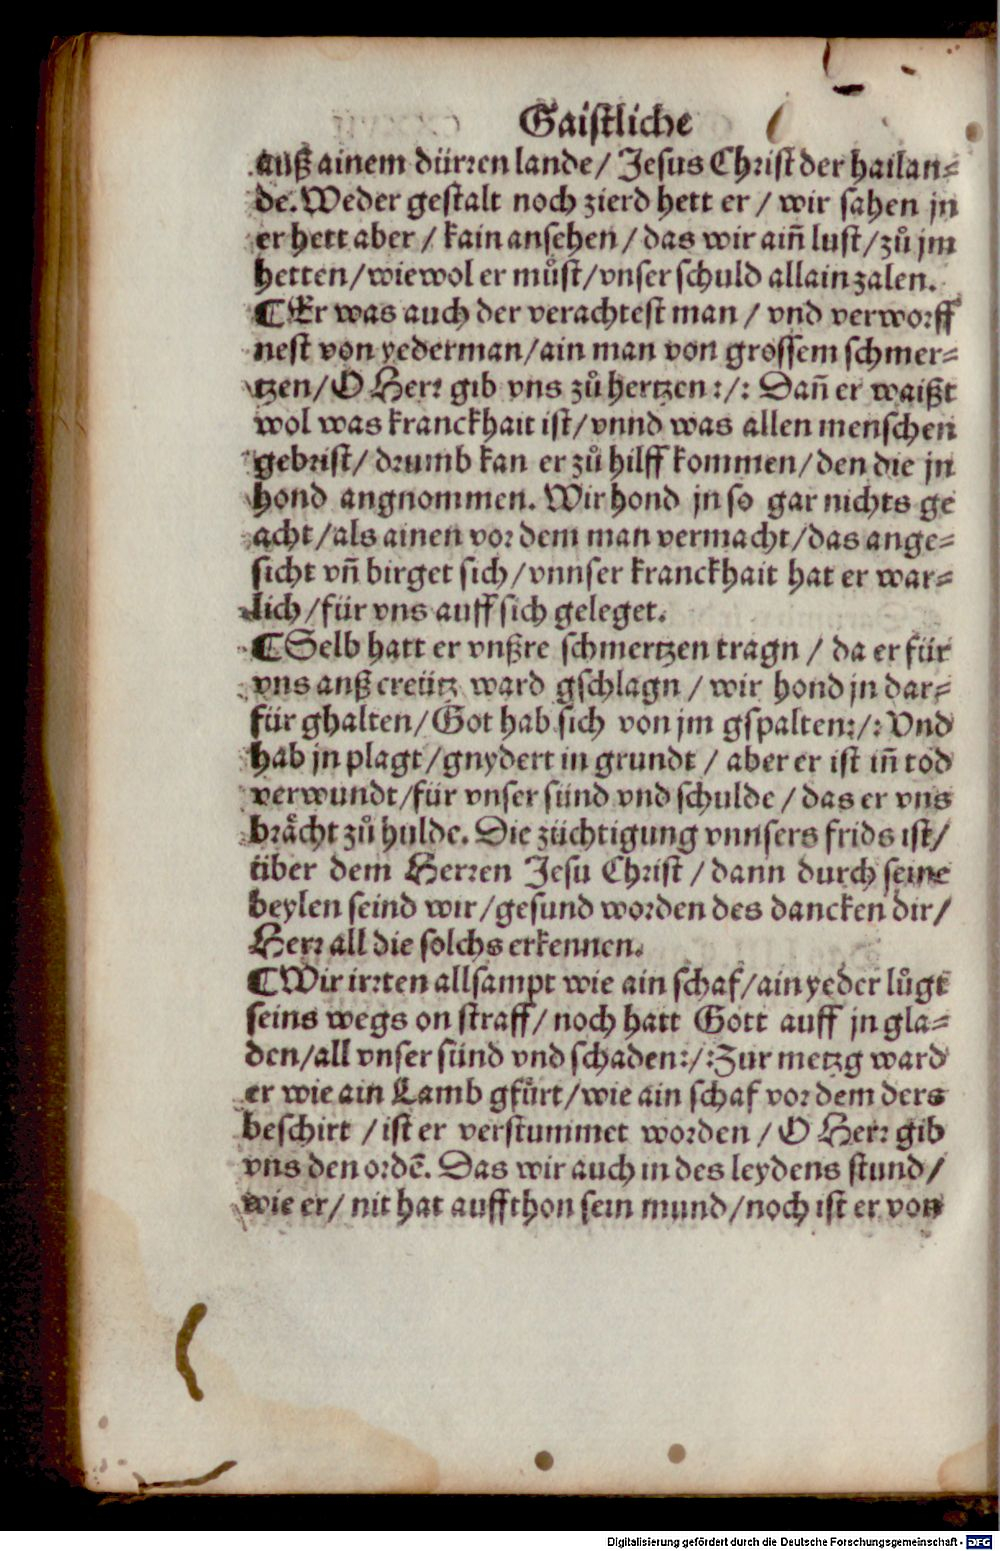 Gaistliche
auß ainem dürren lande/ Jesus Christ der hailan⸗
de. Weder gestalt noch zierd hett er / wir sahen jn
er hett aber / kain ansehen / das wir aiñ lust/zů jm
hetten/wiewol er můst/vnser schuld allain zalen.
¶ Er was auch der verachtest man / vnd verworff
nest von yederman/ain man von grossem schmer⸗
tzen/O Herr gib vns zů hertzen:/: Dañ er waißt
wol was kranckhait ist/vnnd was allen menschen
gebrist/ drumb kan er zů hilff kommen/den die jn
hond angnommen. Wir hond jn so gar nichts ge
acht/als ainen vor dem man vermacht/das ange⸗
sicht vñ birget sich/vnnser kranckhait hat er war⸗
lich/für vns auff sich geleget.
¶ Selb hatt er vnßre schmertzen tragn / da er für
vns anß creütz ward gschlagn / wir hond jn dar⸗
für ghalten/Got hab sich von jm gspalten:/: Vnd
hab jn plagt/gnydert in grundt / aber er ist iñ tod
verwundt/für vnser sünd vnd schulde / das er vns
bråcht zů hulde. Die züchtigung vnnsers frids ist/
über dem Herren Jesu Christ / dann durch seine
beylen seind wir/gesund worden des dancken dir/
Herr all die solchs erkennen.
¶ Wir irrten allsampt wie ain schaf/ain yeder lůgt
seins wegs on straff/ noch hatt Gott auff jn gla⸗
den/all vnser sünd vnd schaden:/:Zur metzg ward
er wie ain Lamb gfůrt/wie ain schaf vor dem ders
beschirt /ist er verstummet worden / O Herr gib
vns den ordē. Das wir auch in des leydens stund/
wie er/ nit hat auffthon sein mund/noch ist er von
Digitalisierung gefördert durch die Deutsche Forschungsgemeinschaft - DFG